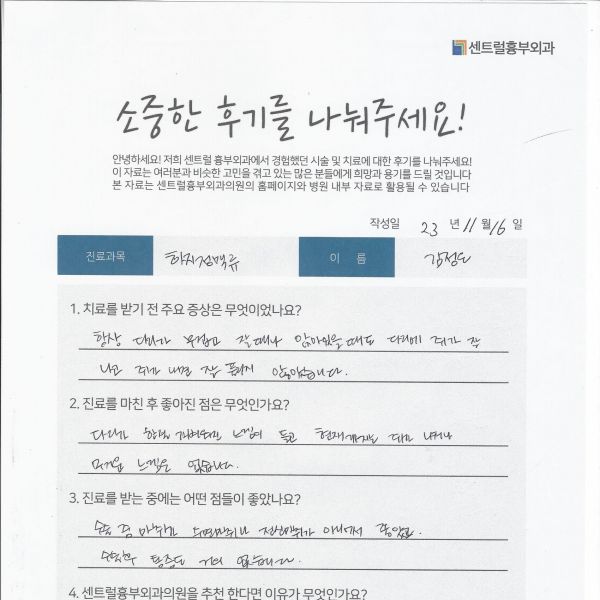 센트럴흉부외과
소중한 후기를 나눠주세요!
안녕하세요! 저희 센트럴 흉부외과에서 경험했던 시술 및 치료에 대한 후기를 나눠주세요!
이 자료는 여러분과 비슷한 고민을 겪고 있는 많은 분들에게 희망과 용기를 드릴 것입니다
본 자료는 센트럴흉부외과의원의 홈페이지와 병원 내부 자료로 활용될 수 있습니다
작성일 23 년 11 월 16 일
진료과목 하지정맥류 이 름
1. 치료를 받기 전 주요 증상은 무엇이었나요?
항상 다리가 무겁고 잘때나 앉아있을때도 다리에 쥐가 잘
나고 쥐가 나면 잘 풀리지 않았습니다.
2. 진료를 마친 후 좋아진 점은 무엇인가요?
다리가 한결 가벼워진 느낌이 들고 현재까지는
무거운 느낌은 없습니다.
3. 진료를 받는 중에는 어떤 점들이 좋았나요?
수술 중 마취가 수면마취나 전신마취가 아니어서 좋았고.
통증도 거의 없습니다.
4. 센트럴흉부외과의원을 추천 한다면 이유가 무엇인가요?